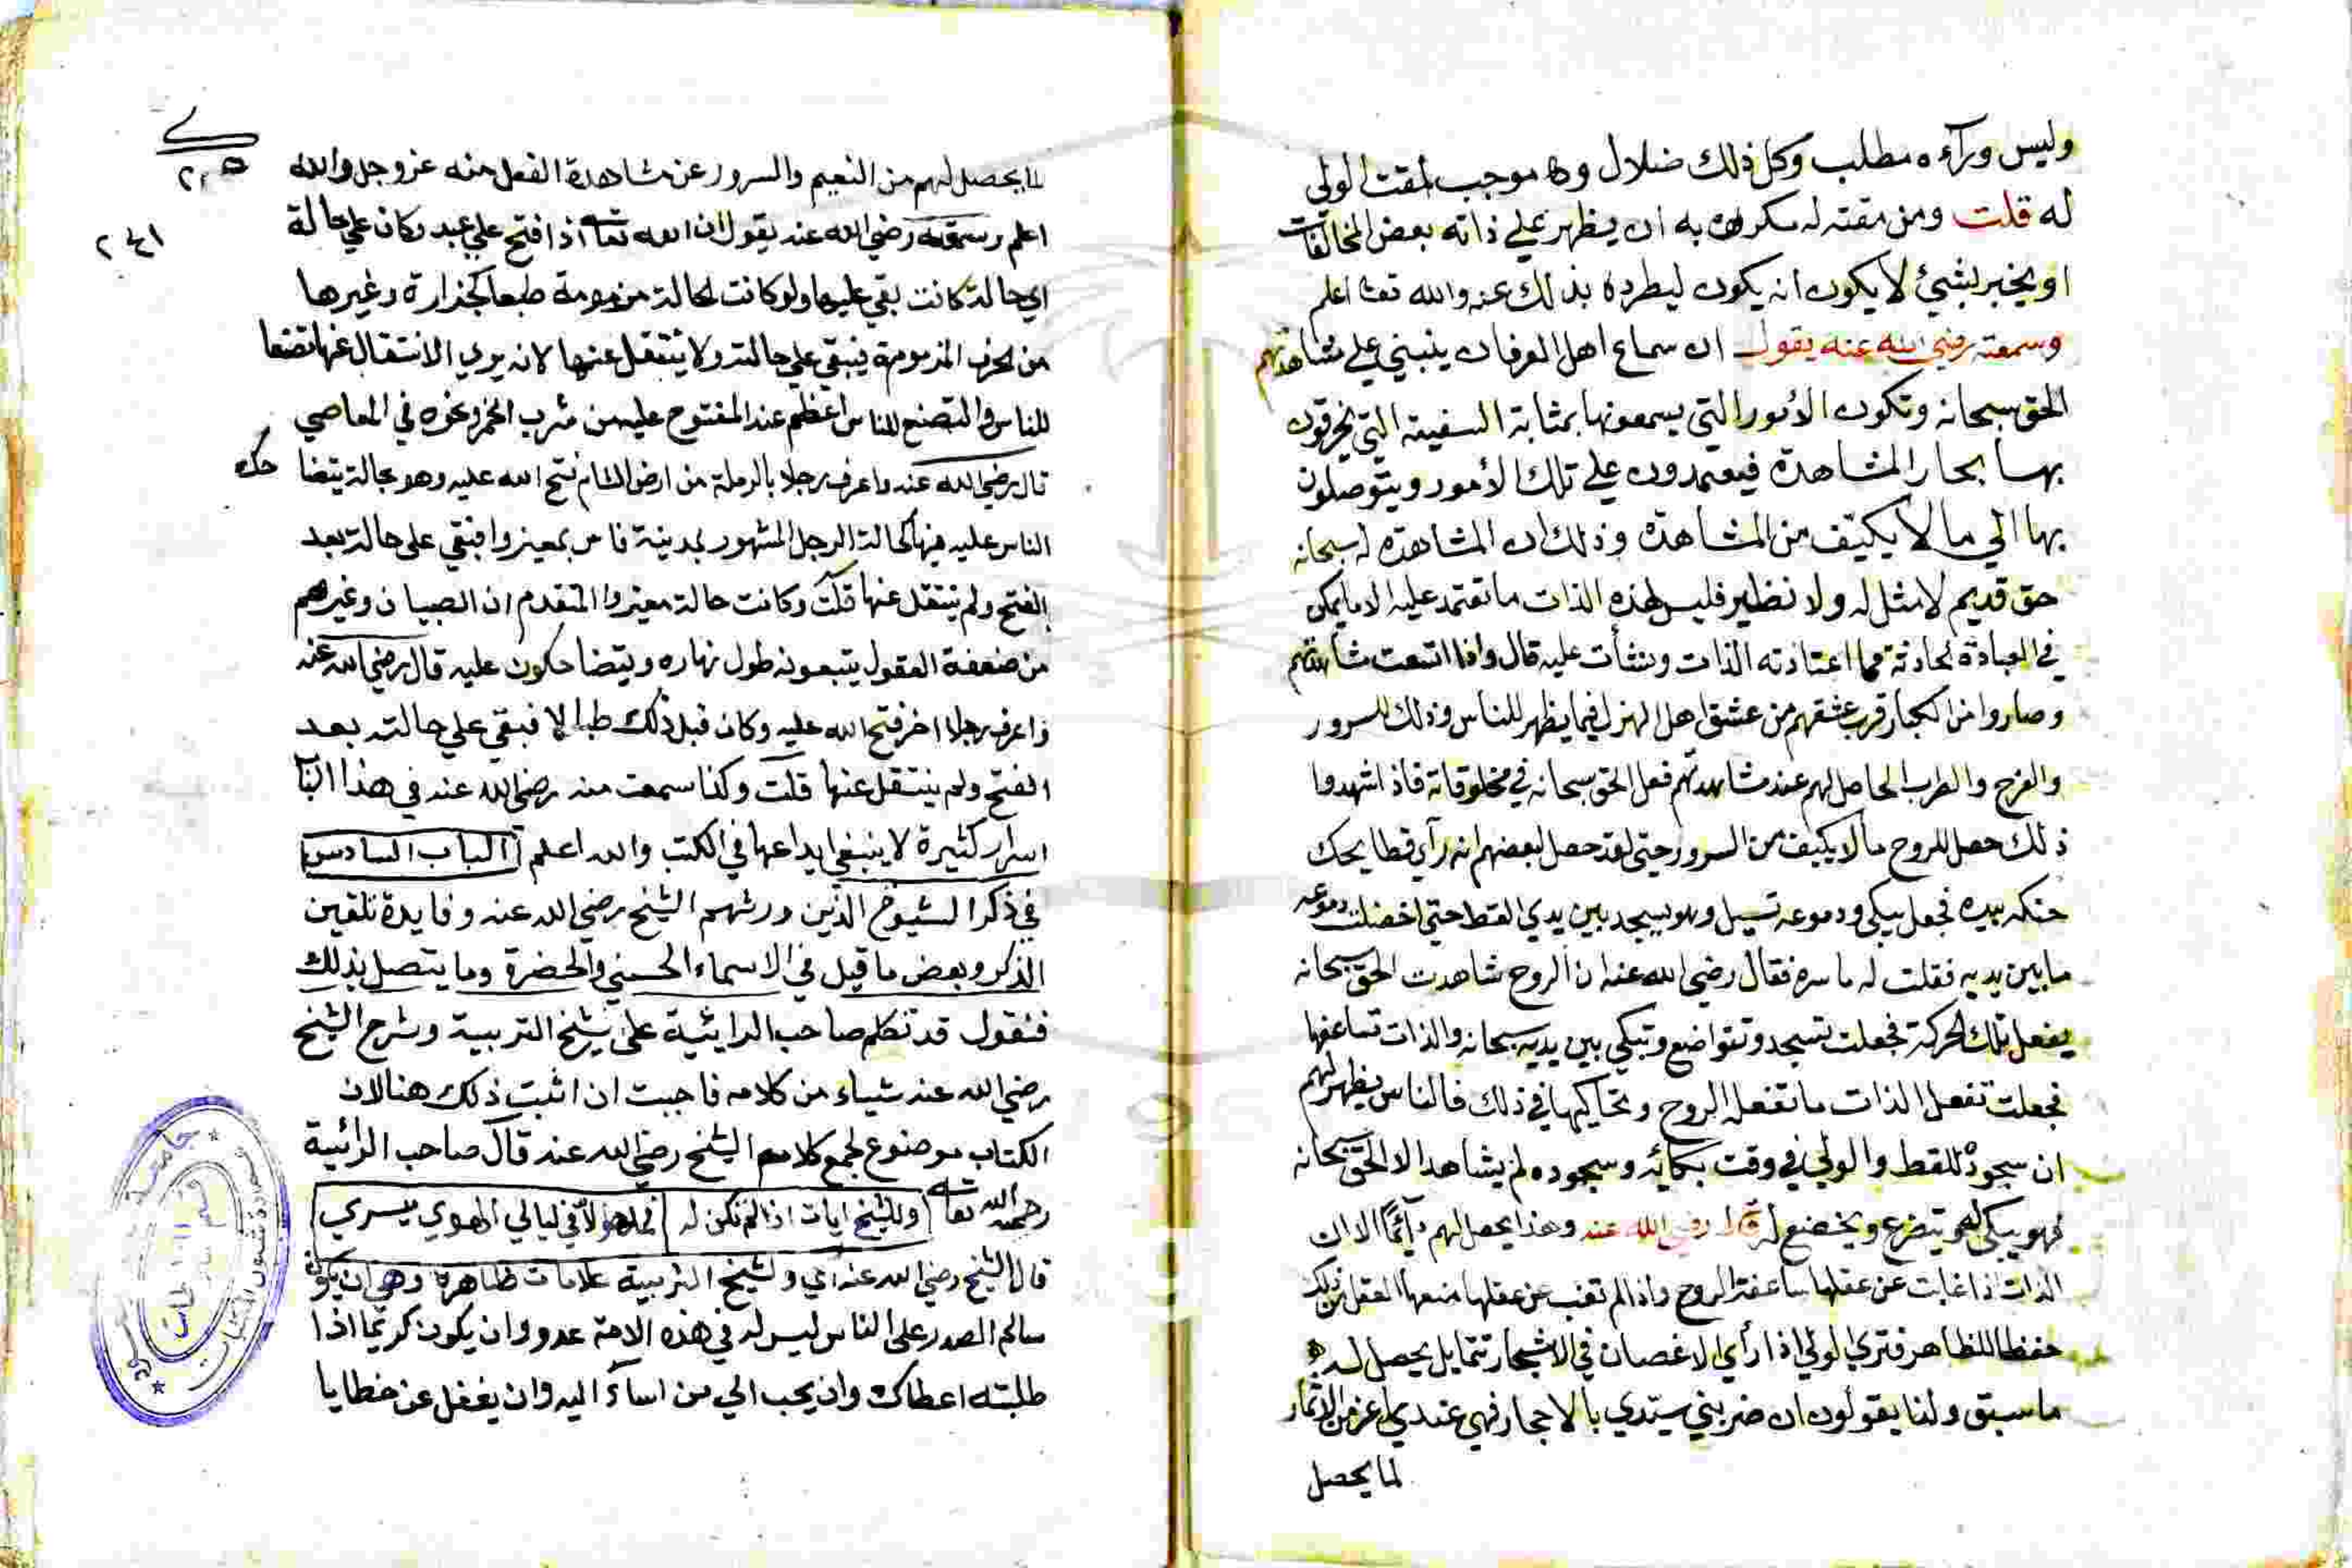 وليس ورآءه مطلب وكل ذلك ضلال وكا موجب لمقت الولي
له قلت ومن مقته له مكره به ان يظهر علي ذاته بعض المخالفات
او يخبر بشيئ لا يكون انه يكون ليطرده بذلك عنه والله تعا اعلم
وسمعته رضي الله عنه يقول ان سماع اهل العرفان ينبني علي مشاهدتهم
الحق سبحانه وتكون الأمور التي يسمعونها بمثابة السفينة التي يخرقون
بها بحار المشاهدة فيعتمدون علي تلك الأمور ويتوصلون
بها الي ما لا يكيّف من المشاهدة وذلك ان المشاهدة له سبحانه
حق قديم لا مثل له ولا نظير فليس لهذه الذات ما تعتمد عليه الا ما يمكن
في العبادة الحادثة مما اعتادته الذات ونشأت عليه قال واذا اتسعت مشاهدتهم
وصاروا من الكبار قرب عشقهم من عشق اهل الهزل فيما يظهر للناس وذلك للسرور
والفرح والطرب الحاصل لهم عند مشاهدتهم فعل الحق سبحانه في مخلوقاته فاذا شهدوا
ذلك حصل للروح ما لا يكيف من السرور حتي لقد حصل لبعضهم انه رآي قطا يحك
حنكه بيده فجعل يبكي ودموعه تسيل وهو يسجد بين يدي القط حتي اخضلت دموعه
ما بين يديه فقلت له ما سره فقال رضي الله عنه ان الروح شاهدت الحق سبحانه
يفعل تلك الحركة فجعلت تسجد وتتواضع وتبكي بين يديه سبحانه والذات تساعفها
فجعلت تفعل الذات ما تفعله الروح وتحاكيها في ذلك فالناس يظهر لهم
ان سجوده للقط والولي في وقت بكائه وسجوده لم يشاهد الا الحق سبحانه
فهو يبكي لهو يتضرع ويخضع له قال رضي الله عنه وهذا يحصل لهم دآئما الا ان
الذات اذا غابت عن عقلها ساعفة الروح واذا لم تغب عن عقلها منعها العقل من ذلك
حفظا للظاهر فتري الولي اذا رأي الاغصان في الاشجار تتمايل يحصل له
ما سبق ولذا يقولون ان ضربني سيدي بالاحجار فهي عندي اعز من الثمار
لما يحصل
ے
٢٠٥
٢٤١
لما يحصل لهم من النعيم والسرور عن مشاهدة الفعل منه عز وجل والله
اعلم وسمعته رضي الله عنه يقول ان الله تعا اذا فتح علي عبد وكان علي حالة
اي حالة كانت بقي عليها ولو كانت الحالة مذمومة طبعا كجزارة وغيرها
من الحرف المذمومة فيبقي علي حالته ولا ينتقل عنها لانه يري الانتقال عنها تصنعا
للناس والتصنع للناس اعظم عند المفتوح عليه من شرب الخمر ونحوه في المعاصي
قال رضي الله عنه واعرف رجلا بالرملة من ارض الشام فتح الله عليه وهو بحالة يتضا حك
الناس عليه فيها كحالة الرجل المشهور بمدينة فاس بمعيزوا فبقي على حالته بعد
الفتح ولم ينتقل عنها قلت وكانت حالة معيزوا المتقدم ان الصبيان وغيرهم
من ضعفة العقول يتبعونه طول نهاره ويتضاحكون عليه قال رضي الله عنه
واعرف رجلا اخر فتح الله عليه وكان قبل ذلك طبالا فبقي علي حالته بعد
الفتح ولم ينتقل عنها قلت وكنا سمعت منه رضي الله عنه في هذا البا
اسرار كثيرة لا ينبغي ايداعها في الكتب والله اعلم الباب السادس
في ذكر الشيوخ الذين ورثهم الشيخ رضي الله عنه وفايدة تلقين
الذكر وبعض ما قيل في الاسماء الحسني والحضرة وما يتصل بذلك
فنقول قد تكلم صاحب الرائية على شيخ التربية وشرح الشيخ
رضي الله عنه شياء من كلامه فاحببت ان اثبت ذلك هنا لان
الكتاب موضوع لجمع كلام الشيخ رضي الله عنه قال صاحب الرائية
رحمه الله تعا وللشيخ ايات اذا لم تكن له فما هو الا في ليالي الهوي يسري
قال الشيخ رضي الله عنه اي ولشيخ التربية علامات ظاهرة وهي ان يكون
سالم الصدر على الناس ليس له في هذه الامة عدو وان يكون كريما اذا
طلبته اعطاك وان يحب الي من اسآء اليه وان يغفل عن خطايا